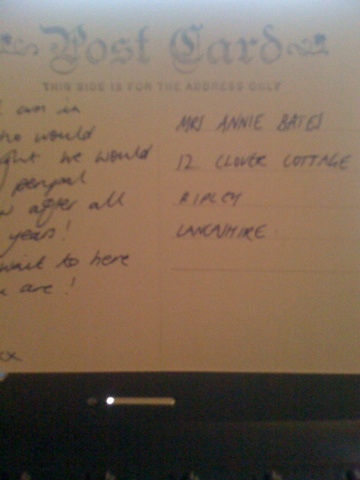 Post Card
THIS SIDE IS FOR THE ADDRESS ONLY
I am in
who would
ght we would
penpal
after all
years!
wait to here
are!
xx
MRS ANNIE BATES
12 CLOVER COTTAGE
RIPLEY
LANCASHIRE